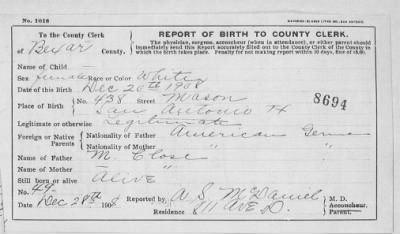 No. 1016
MAVERICK-CLARKE LITHO CO., SAN ANTONIO
To the County Clerk
of Bexar
County.
REPORT OF BIRTH TO COUNTY CLERK.
The physician, surgeon, accoucheur (when in attendance), or either parent should
immediately send this Report accurately filled out to the County Clerk of the County in
which the birth takes place. Penalty for not making report within 10 days, fine of $5.00.
Name of Child —
Sex female Race or Color White
Date of this Birth Dec 20th 1908
Place of Birth No. 438 Street Mason
San Antonio Tx
8694
Legitimate or otherwise Legitimate
Foreign or Native Parents
Nationality of Father American
Nationality of Mother " "
Name of Father M. Close
Name of Mother —
Still born or alive Alive
No. 49-
Date Dec 28th 1908 Reported by A S McDaniel
Residence 811 Ave D.
M. D.
Accoucheur.
Parent.